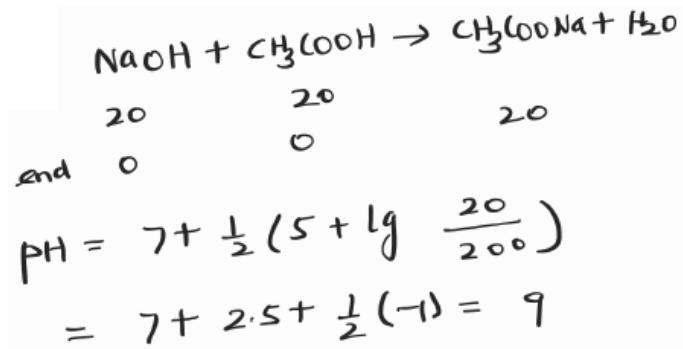 NaOH + CH3COOH → CH3COONa + H2O
20 20 20
end 0 0
pH = 7 + 1/2 (5 + lg 20/200)
= 7 + 2.5 + 1/2 (-1) = 9